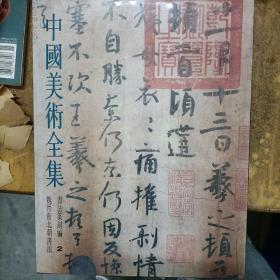 中國美術全集
書法篆刻編 2
魏晉南北朝書法
一月十三日羲之頓
首頃遘
母哀〻痛摧剥情
不自勝奈何奈何因反慘
塞不次王羲之頓首